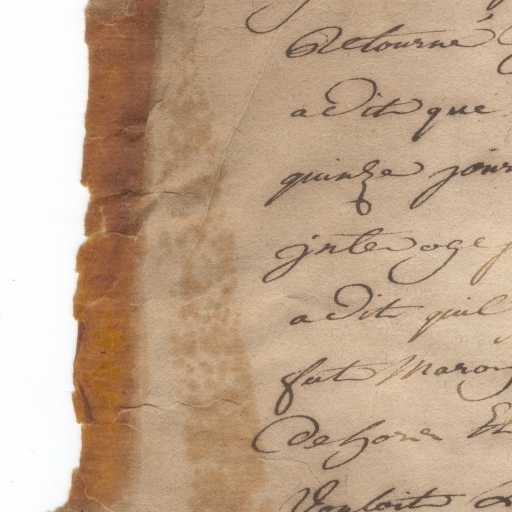 Retourné
a dit que
quinze jour
jnteroge
a dit quil
fut Maron
dehors Et
Vouloit